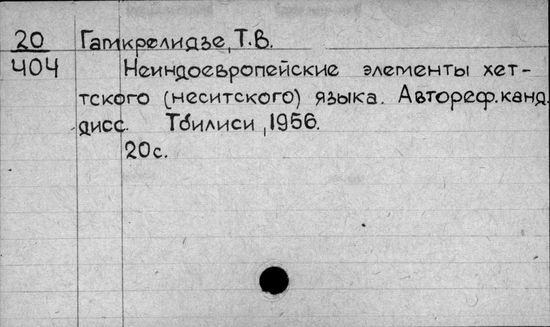 20 Гамкрелидзе, Т.В.
404 Неиндоевропейские элементы хет-
тского (неситского) языка. Автореф.канд.
дисс. Тбилиси, 1956.
20с.